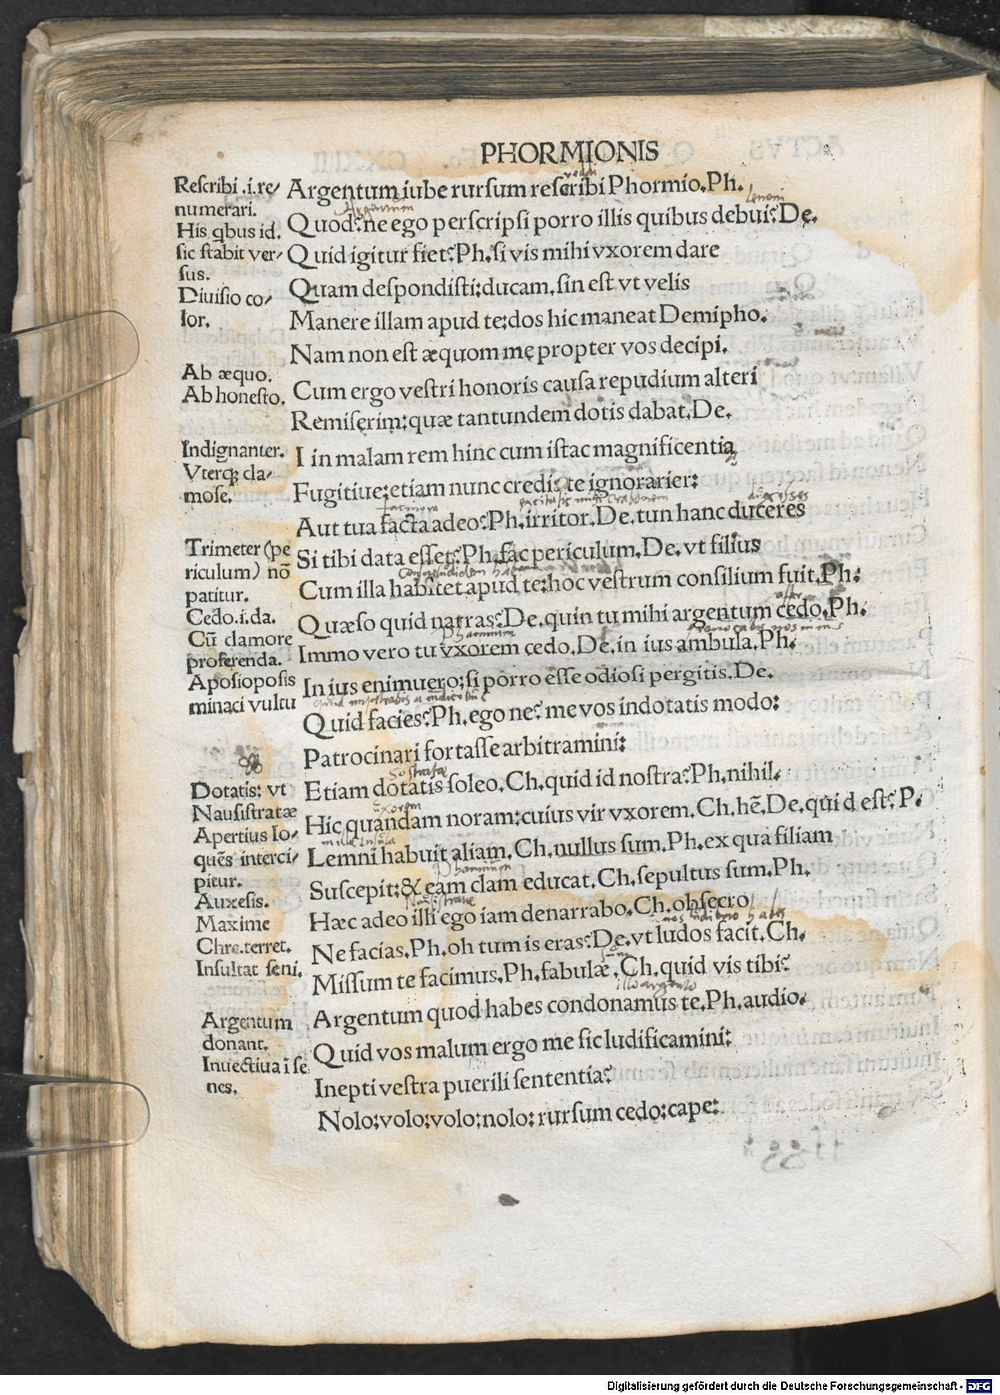 PHORMIONIS
Rescribi .i.re/
numerari.
His qbus id.
sic stabit ver/
sus.
Diuisio co/
lor.
Ab æquo.
Ab honesto.
Indignanter.
Vterq; cla/
mose.
Trimeter (pe
riculum) nō
patitur.
Cedo.i.da.
Cū clamore
proferenda.
Aposioposis
minaci vultu
Dotatis: vt
Nausistratæ
Apertius lo/
quēs interci/
pitur.
Auxesis.
Maxime
Chre.terret.
Insultat seni.
Argentum
donant.
Inuectiua ī se
nes.
Argentum iube rursum rescribi Phormio.Ph.
Quod:ne ego perscripsi porro illis quibus debui:De.
Quid igitur fiet:Ph.si vis mihi vxorem dare
Quam despondisti:ducam.sin est vt velis
Manere illam apud te:dos hic maneat Demipho.
Nam non est æquom me propter vos decipi.
Cum ergo vestri honoris causa repudium alteri
Remiserim:quæ tantundem dotis dabat.De.
I in malam rem hinc cum istac magnificentia
Fugitiue:etiam nunc credis te ignorarier:
Aut tua facta adeo:Ph.irritor.De.tun hanc duceres
Si tibi data esset:Ph.fac periculum.De.vt filius
Cum illa habitet apud te:hoc vestrum consilium fuit.Ph:
Quæso quid narras:De.quin tu mihi argentum cedo.Ph.
Immo vero tu vxorem cedo.De.in ius ambula.Ph.
In ius enimuero:si porro esse odiosi pergitis.De.
Quid facies:Ph.ego ne:me vos indotatis modo:
Patrocinari fortasse arbitramini:
Etiam dotatis soleo.Ch.quid id nostra:Ph.nihil.
Hic quandam noram:cuius vir vxorem.Ch.hē.De.quid est:P.
Lemni habuit aliam.Ch.nullus sum.Ph.ex qua filiam
Suscepit:& eam clam educat.Ch.sepultus sum.Ph.
Hæc adeo illi ego iam denarrabo.Ch.obsecro
Ne facias.Ph.oh tum is eras:De.vt ludos facit.Ch.
Missum te facimus.Ph.fabulæ.Ch.quid vis tibi:
Argentum quod habes condonamus te.Ph.audio.
Quid vos malum ergo me sic ludificamini:
Inepti vestra puerili sententia:
Nolo:volo:volo:nolo:rursum cedo:cape:
Digitalisierung gefördert durch die Deutsche Forschungsgemeinschaft - DFG